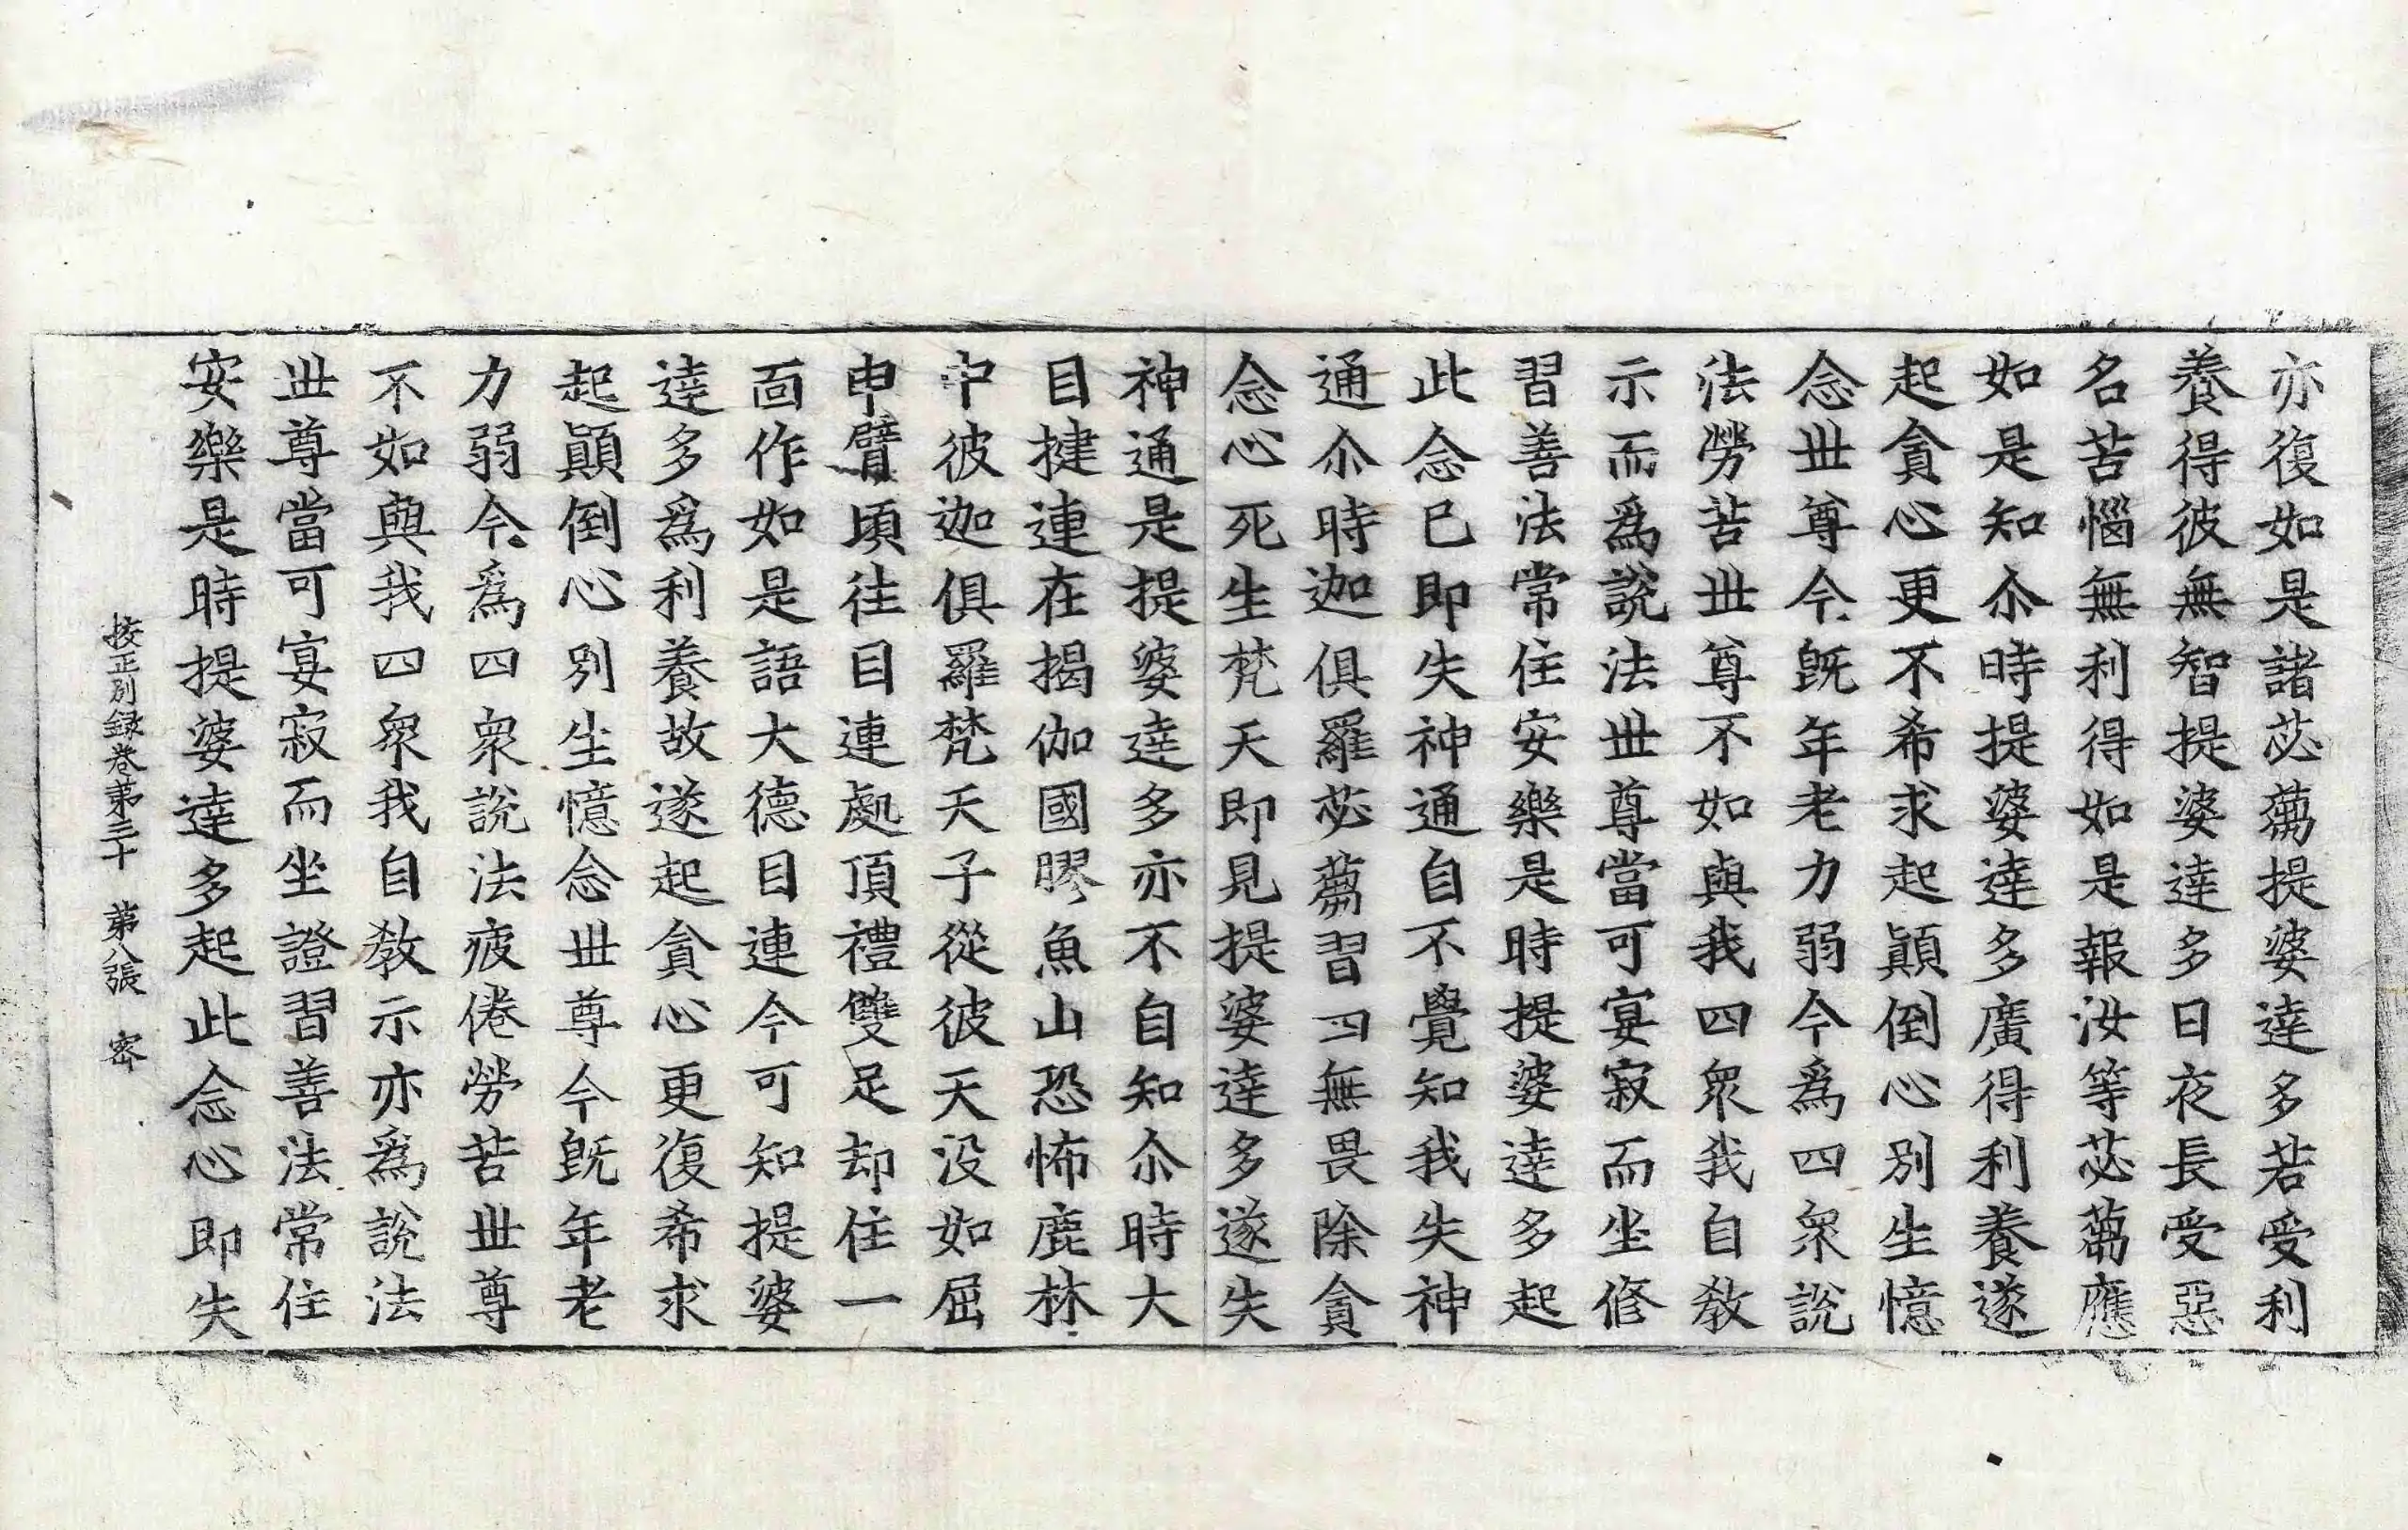 亦復如是諸苾蒭提婆達多若受利
養得彼無智提婆達多日夜長受惡
名苦惱無利得如是報汝等苾蒭應
如是知尒時提婆達多廣得利養遂
起貪心更不希求起顚倒心別生憶
念丗尊今旣年老力弱今爲四衆說
法勞苦丗尊不如與我四衆我自敎
示而爲說法丗尊當可宴寂而坐修
習善法常住安樂是時提婆達多起
此念已即失神通自不覺知我失神
通尒時迦俱羅苾蒭習四無畏除貪
念心死生梵天即見提婆達多遂失
神通是提婆達多亦不自知尒時大
目揵連在揭伽國膠魚山恐怖鹿林
中彼迦俱羅梵天子從彼天没如屈
申臂頃往目連處頂禮雙足却住一
面作如是語大德目連今可知提婆
達多爲利養故遂起貪心更復希求
起顚倒心別生憶念丗尊今旣年老
力弱今爲四衆說法疲倦勞苦丗尊
不如與我四衆我自敎示亦爲說法
丗尊當可宴寂而坐證習善法常住
安樂是時提婆達多起此念心即失
挍正別録卷第三十 第八張 宻